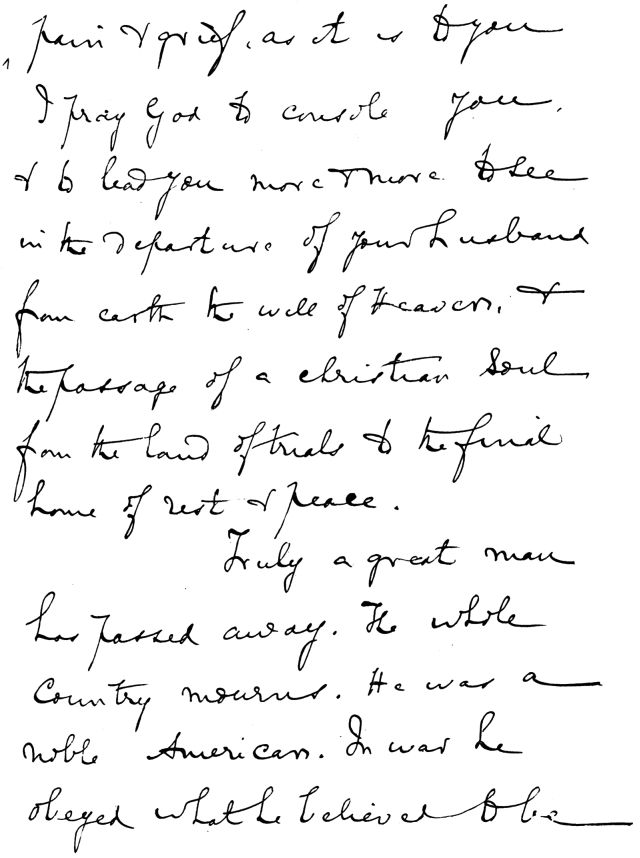 pain & grief, as it is to you
I pray God to console you,
& to lead you more & more to see
in the departure of your husband
from earth the will of Heaven, &
the passage of a christian soul
from the land of trials to the final
home of rest & peace.
Truly a great man
has passed away. The whole
Country mourns. He was a
noble American. In war he
obeyed what he believed to be